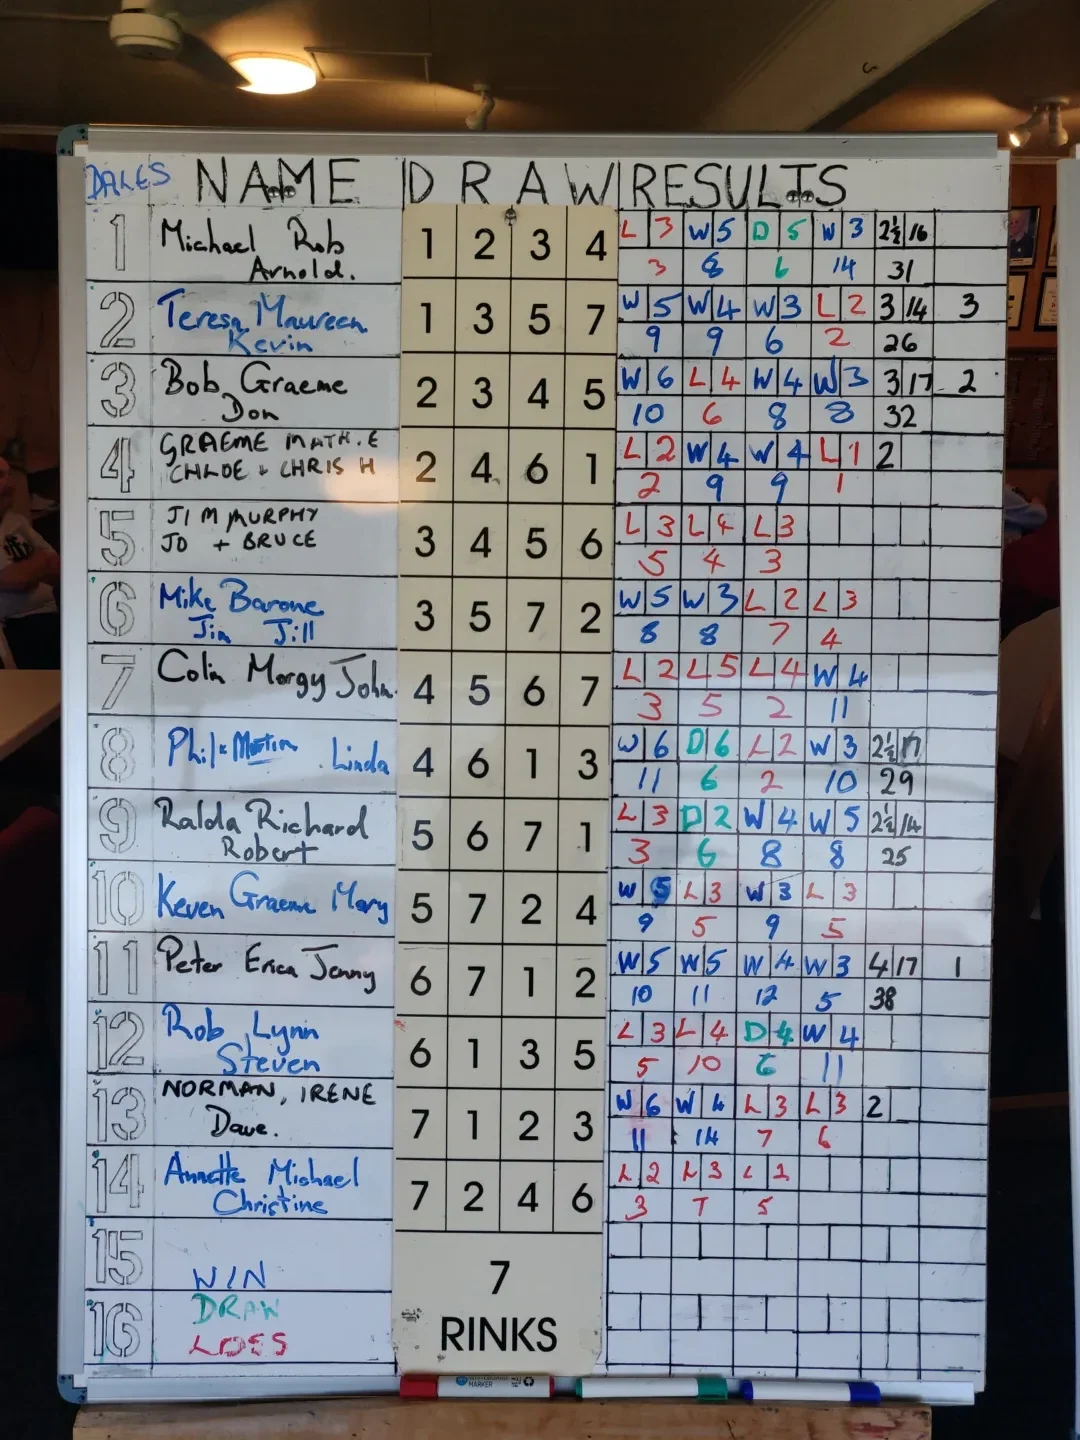 DALES NAME DRAW RESULTS
1 Michael Rob 1 2 3 4 L 3 W 5 D 5 W 3 2½ 16
Arnold. 3 8 6 14 31
2 Teresa Maureen 1 3 5 7 W 5 W 4 W 3 L 2 3 14 3
Kevin 9 9 6 2 26
3 Bob, Graeme 2 3 4 5 W 6 L 4 W 4 W 3 3 17 2
Don 10 6 8 8 32
4 GRAEME MATH.E 2 4 6 1 L 2 W 4 W 4 L 1 2
CHLOE & CHRIS H 2 9 9 1
5 JIM MURPHY 3 4 5 6 L 3 L 4 L 3
JO + BRUCE 5 4 3
6 Mike Barone 3 5 7 2 W 5 W 3 L 2 L 3
Jim Jill 8 8 7 4
7 Colin Morgy John 4 5 6 7 L 2 L 5 L 4 W 4
3 5 2 11
8 Phil & Martin Linda 4 6 1 3 W 6 D 6 L 2 W 3 2½ 17
11 6 2 10 29
9 Ralda Richard 5 6 7 1 L 3 D 2 W 4 W 5 2½ 14
Robert 3 6 8 8 25
10 Keven Graeme Mary 5 7 2 4 W 5 L 3 W 3 L 3
9 5 9 5
11 Peter Erica Jenny 6 7 1 2 W 5 W 5 W 4 W 3 4 17 1
10 11 12 5 38
12 Rob Lynn 6 1 3 5 L 3 L 4 D 4 W 4
Steven 5 10 6 11
13 NORMAN, IRENE 7 1 2 3 W 6 W 4 L 3 L 3 2
Dave. 11 14 7 6
14 Annette Michael 7 2 4 6 L 2 L 3 L
Christine 3 7 5
15 WIN 7
16 DRAW RINKS
LOSS
MARKER